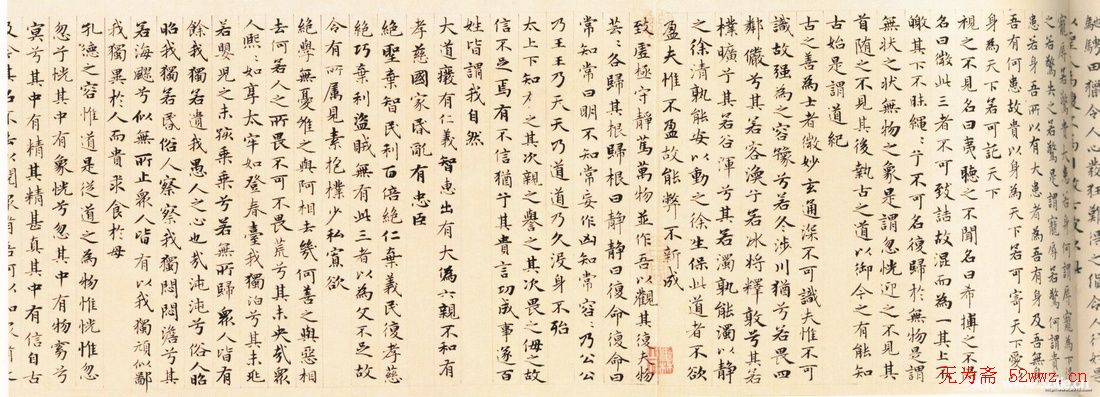 馳騁田獵令人心發狂難得之貨令人行妨
吾所以有大患者為吾有身及吾無身
吾有何患故貴以身為天下若可寄天下愛以
身為天下若可託天下
視之不見名曰夷聽之不聞名曰希搏之不得
名曰微此三者不可致詰故混而為一其上不
皦其下不昧繩〻兮不可名復歸於無物是謂
無狀之狀無物之象是謂忽恍迎之不見其
首隨之不見其後執古之道以御今之有能知
古始是謂道紀
古之善為士者微妙玄通深不可識夫惟不可
識故強為之容豫兮若冬涉川猶兮若畏四
鄰儼兮其若客渙兮若冰將釋敦兮其若
樸曠兮其若谷渾兮其若濁孰能濁以靜
之徐清孰能安以動之徐生保此道者不欲
盈夫惟不盈故能弊不新成
致虛極守靜篤萬物並作吾以觀其復夫物
芸〻各歸其根歸根曰靜靜曰復命復命曰
常知常曰明不知常妄作凶知常容〻乃公公
乃王王乃天天乃道道乃久沒身不殆
太上下知有之其次親之譽之其次畏之侮之故
信不足焉有不信猶兮其貴言功成事遂百
姓皆謂我自然
大道廢有仁義智惠出有大偽六親不和有
孝慈國家昏亂有忠臣
絕聖棄智民利百倍絕仁棄義民復孝慈
絕巧棄利盜賊無有此三者以為文不足故
令有所屬見素抱樸少私寡欲
絕學無憂唯之與阿相去幾何善之與惡相
去何若人之所畏不可不畏荒兮其未央哉眾
人熙〻如享太牢如登春臺我獨泊兮其未兆
若嬰兒之未孩乘乘兮若無所歸眾人皆有
餘我獨若遺我愚人之心也哉沌沌兮俗人昭
昭我獨若昏俗人察察我獨悶悶澹兮其
若海飂兮似無所止眾人皆有以我獨頑似鄙
我獨異於人而貴求食於母
孔德之容惟道是從道之為物惟恍惟忽
忽兮恍其中有象恍兮忽其中有物窈兮
冥兮其中有精其精甚真其中有信自古
及今其名不去以閱眾甫吾何以知眾甫
无为斋 52wwz.cn